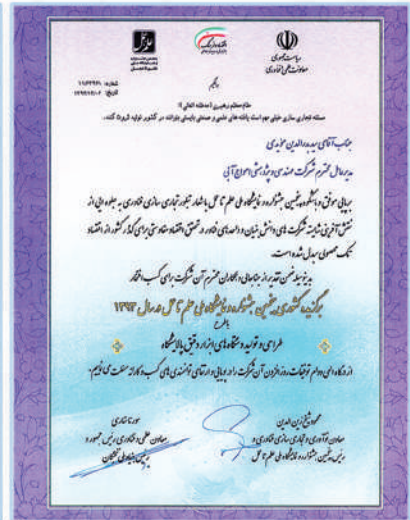 ریاست جمهوری
معاونت علمی و فناوری
شماره: ۱۱/۶۳۹۶۱
تاریخ: ۱۳۹۳/۱۲/۰۲
مقام معظم رهبری (مدظله العالی):
مسئله تجاری سازی خیلی مهم است یافته های علمی و صنعتی بایستی بتوانند در کشور تولید ثروت کنند.
جناب آقای سید بدرالدین
مدیر عامل محترم شرکت مهندسی و پژوهشی امواج آبی
برپایی موفق و باشکوه پنجمین جشنواره و نمایشگاه ملی علم تا عمل با شعار تبلور تجاری سازی فناوری به جلوه ایی از
نقش آفرینی شایسته شرکت های دانش بنیان و واحدهای فناور در تحقق اقتصاد مقاومتی برای گذار کشور از اقتصاد
تک محصولی مبدل شده است.
بدینوسیله ضمن تقدیر از جنابعالی و همکاران محترم آن شرکت برای کسب افتخار
برگزیده کشوری پنجمین جشنواره و نمایشگاه ملی علم تا عمل در سال ۱۳۹۳
با طرح
طراحی و تولید دستگاه های ابزار دقیق پالایشگاه
از درگاه الهی دوام توفیقات روزافزون آن شرکت را در پویایی و ارتقای توانمندی های کسب و کارانه مسئلت می نمایم.
محمود شیخ زین الدین
معاون نوآوری و تجاری سازی فناوری و
رئیس پنجمین جشنواره و نمایشگاه ملی علم تا عمل
سورنا ستاری
معاون علمی و فناوری رئیس جمهور و
رئیس بنیاد ملی نخبگان